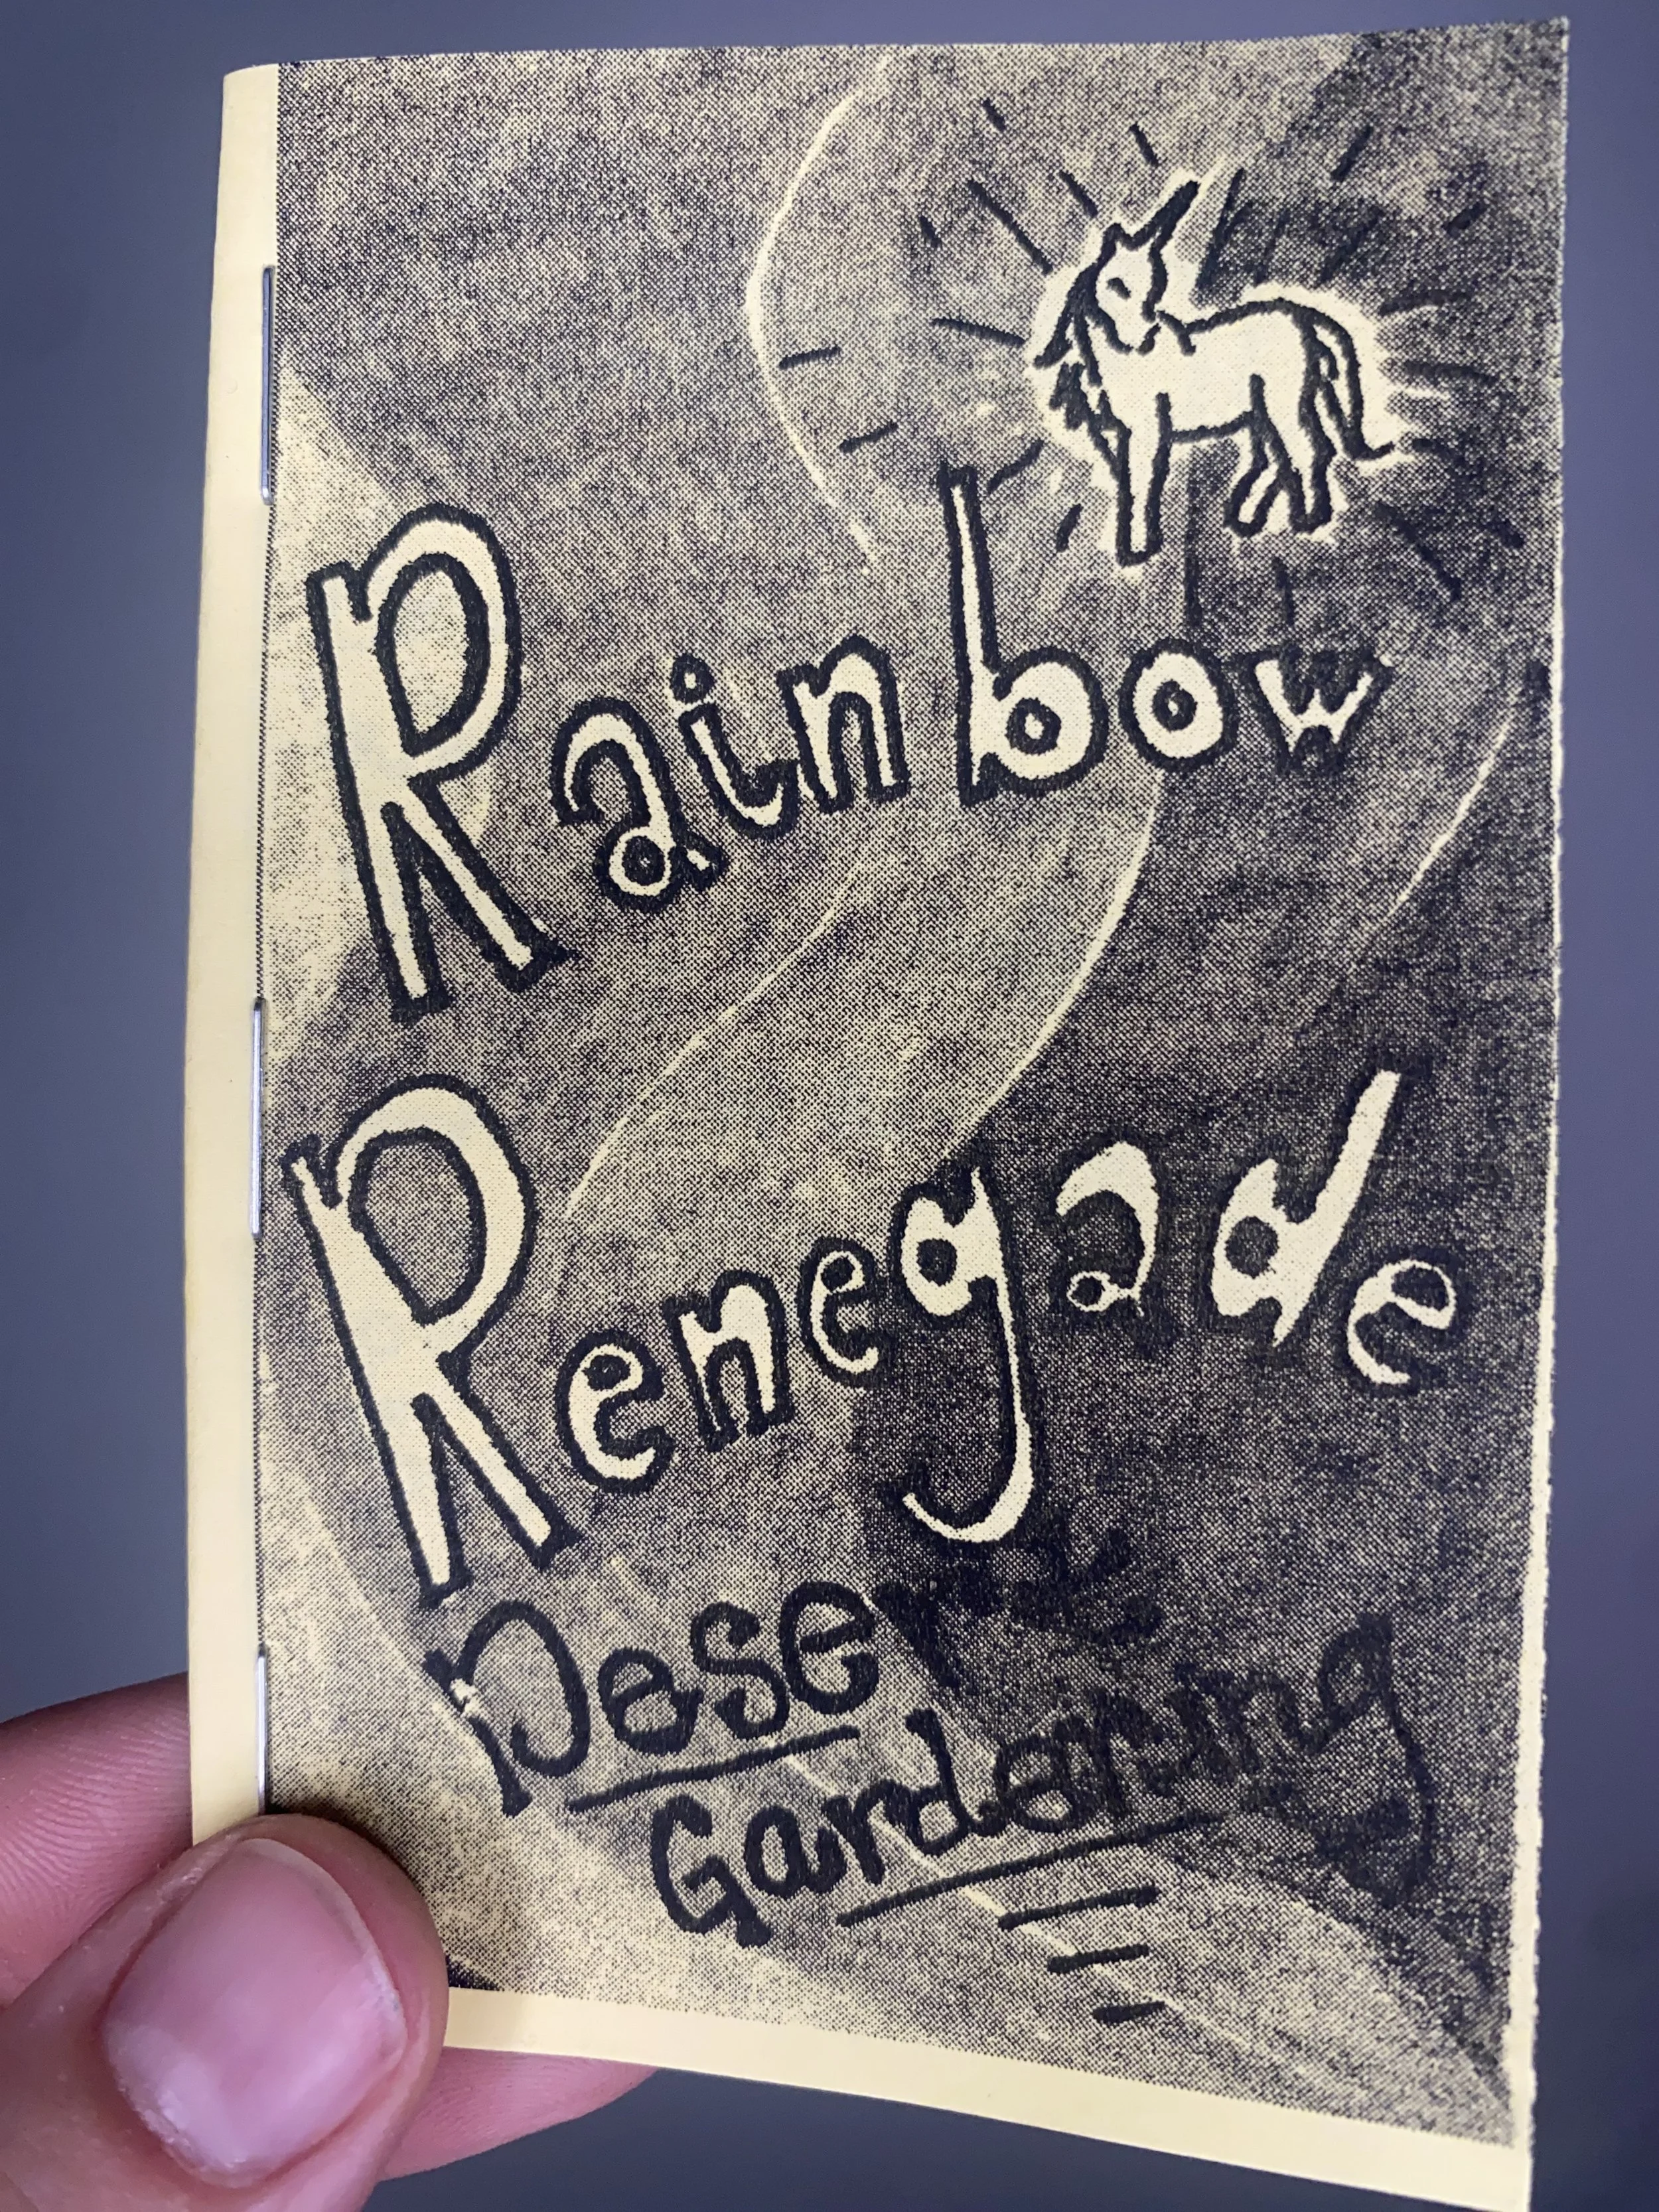 Rainbow
Renegade
Desert
Gardening